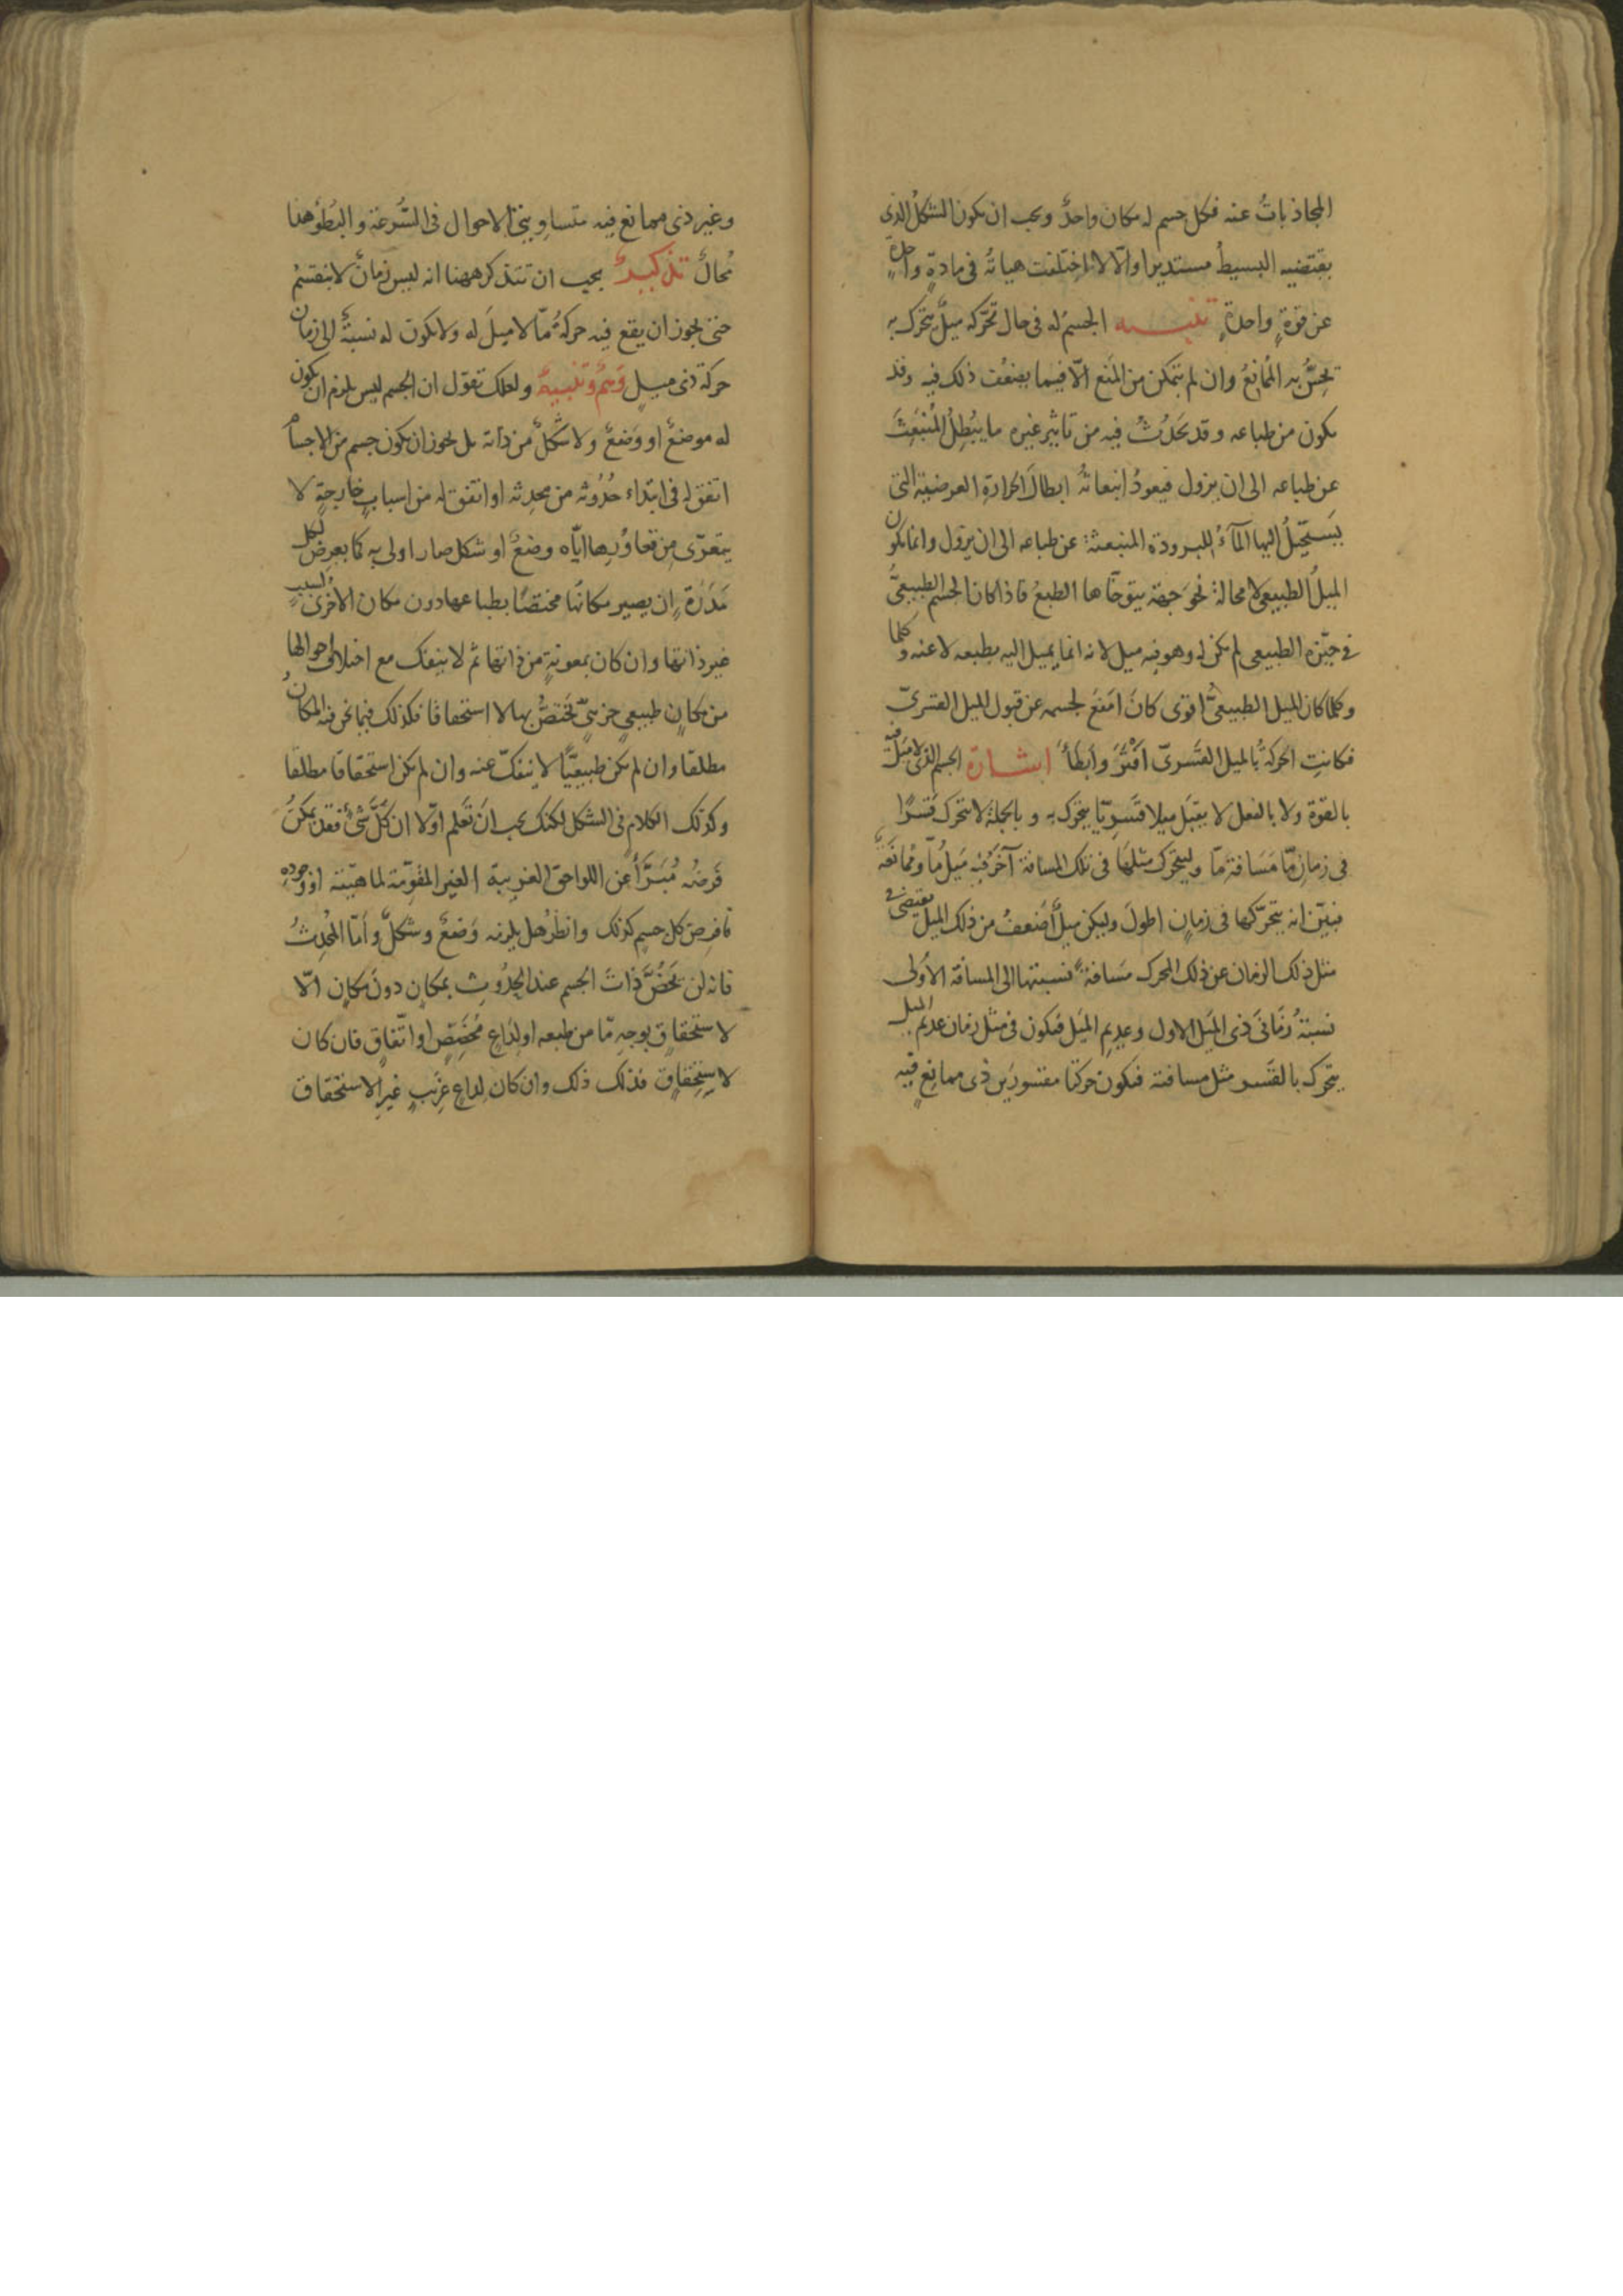 المجاذبات عنه فكل جسم له مكان واحد ويجب ان يكون الشكل الذى
يقتضيه البسيط مستديرا والا لاختلفت هياته فى مادة واحدة
عن قوة واحدة تنبيه الجسم له فى حال تحركه ميل يتحرك به
يحس به الممانع وان لم يتمكن من المنع الا فيما يضعف ذلك فيه وقد
يكون من طباعه وقد يحدث فيه من تاثير غيره ما يبطل المنبعث
عن طباعه الى ان يزول فيعود انبعاثه ابطال الحرارة العرضية التى
يستحيل اليها الماء للبرودة المنبعثة عن طباعه الى ان يزول وانما يكون
الميل الطبيعى لا محالة نحو جهة يتوخاها الطبع فاذا كان الجسم الطبيعى
فى حيزه الطبيعى لم يكن له وهو فيه ميل لانه انما يميل اليه بطبعه لا عنه وكلما
وكلما كان الميل الطبيعى اقوى كان امنع لجسمه عن قبول الميل القسرى
فكانت الحركة بالميل القسرى افتر وابطأ اشارة الجسم الذى لا ميل فيه
بالقوة ولا بالفعل لا يقبل ميلا قسريا يتحرك به وبالجملة لا يتحرك قسرا
فى زمان ما مسافة ما وليتحرك مثلها فى تلك المسافة آخر فيه ميل ما وممانعة
فبين انه يتحركها فى زمان اطول وليكن ميل اضعف من ذلك الميل يقتضى فى
مثل ذلك الزمان عن ذلك المحرك مسافة نسبتها الى المسافة الاولى
نسبة زمانى ذى الميل الاول وعديم الميل فيكون فى مثل زمان عديم الميل
يتحرك بالقسر مثل مسافته فيكون حركتا مقسورين ذى ممانع فيه
وغير ذى ممانع فيه متساويتى الاحوال فى السرعة والبطؤ هذا
محال تذكير يجب ان تتذكر ههنا انه ليس زمان لا ينقسم
حتى يجوز ان يقع فيه حركة ما لا ميل له ولا يكون له نسبة الى زمان
حركة ذى ميل وهم وتنبيه ولعلك تقول ان الجسم ليس يلزم ان يكون
له موضع او وضع ولا شكل من ذاته بل يجوز ان يكون جسم من الاجسام
اتفق له فى ابتداء حدوثه من محدثه او اتفق له من اسباب خارجة لا
يتعرى من تعاورها اياه وضع او شكل صار اولى به كما يعرض لكل
مدرة ان يصير مكانها مختصا بطباعها دون مكان الاخرى لسبب
غير ذاتها وان كان بمعونة من ذاتها ثم لا ينفك مع اختلاف احوالها
من مكان طبيعى جزيى تختص بها لا استحقاقا فكذلك فيما نحن فيه المكان
مطلقا وان لم يكن طبيعيا لا ينفك عنه وان لم يكن استحقاقا مطلقا
وكذلك الكلام فى الشكل لكنك يجب ان تعلم اولا ان كل شئ فقد يمكن
فرضه مبرأ عن اللواحق الغريبة الغير المقومة لماهيته او وجوده
فافرض كل جسم كذلك وانظر هل يلزمه وضع وشكل واما المحدث
فانه لن يخص ذات الجسم عند الحدوث بمكان دون مكان الا
لاستحقاق بوجه ما من طبعه او لداع مخصص او اتفاق فان كان
لاستحقاق فذلك ذلك وان كان لداع غريب غير الاستحقاق